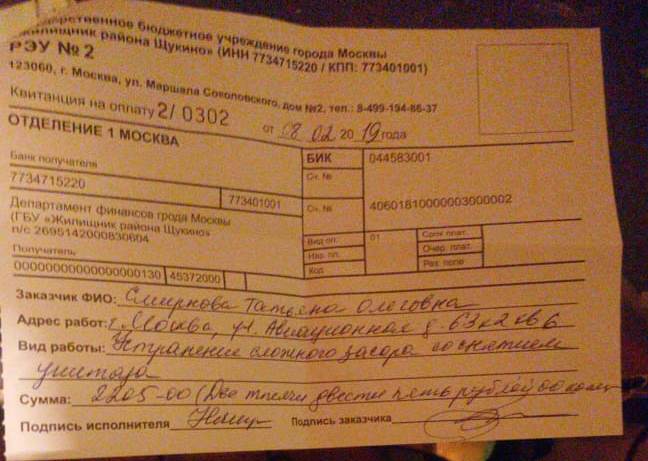 дарственное бюджетное учреждение города Москвы
«Жилищник района Щукино» (ИНН 7734715220 / КПП: 773401001)
РЭУ № 2
123060, г. Москва, ул. Маршала Соколовского, дом №2, тел.: 8-499-194-86-37
Квитанция на оплату 2/ 0302 от 08 02 2019 года
ОТДЕЛЕНИЕ 1 МОСКВА
БИК 044583001
Банк получателя
Сч. №
7734715220 773401001
Сч. № 40601810000003000002
Департамент финансов грода Москвы
(ГБУ «Жилищник района Щукино»
л/с 2695142000830604
Вид оп. 01 Срок плат.
Наз. пл. Очер. плат.
Код Рез. поле
Получатель
00000000000000000130 45372000
Заказчик ФИО: Смирнова Татьяна Олеговна
Адрес работ: г. Москва, ул. Авиационная д. 63к2 кв 6
Вид работы: Устранение сложного засора со снятием
унитаза
Сумма: 2205-00 (Две тысячи двести пять рублей 00 копе
Подпись исполнителя Подпись заказчика